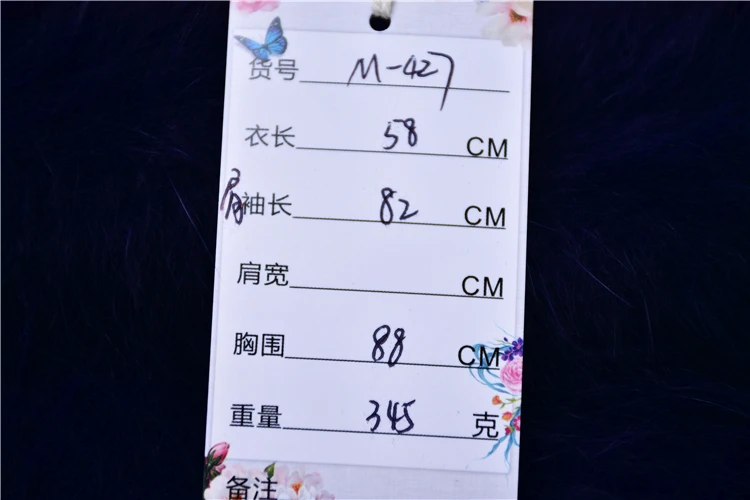 货号 M-427
衣长 58 CM
肩袖长 82 CM
肩宽 CM
胸围 88 CM
重量 345 克
备注